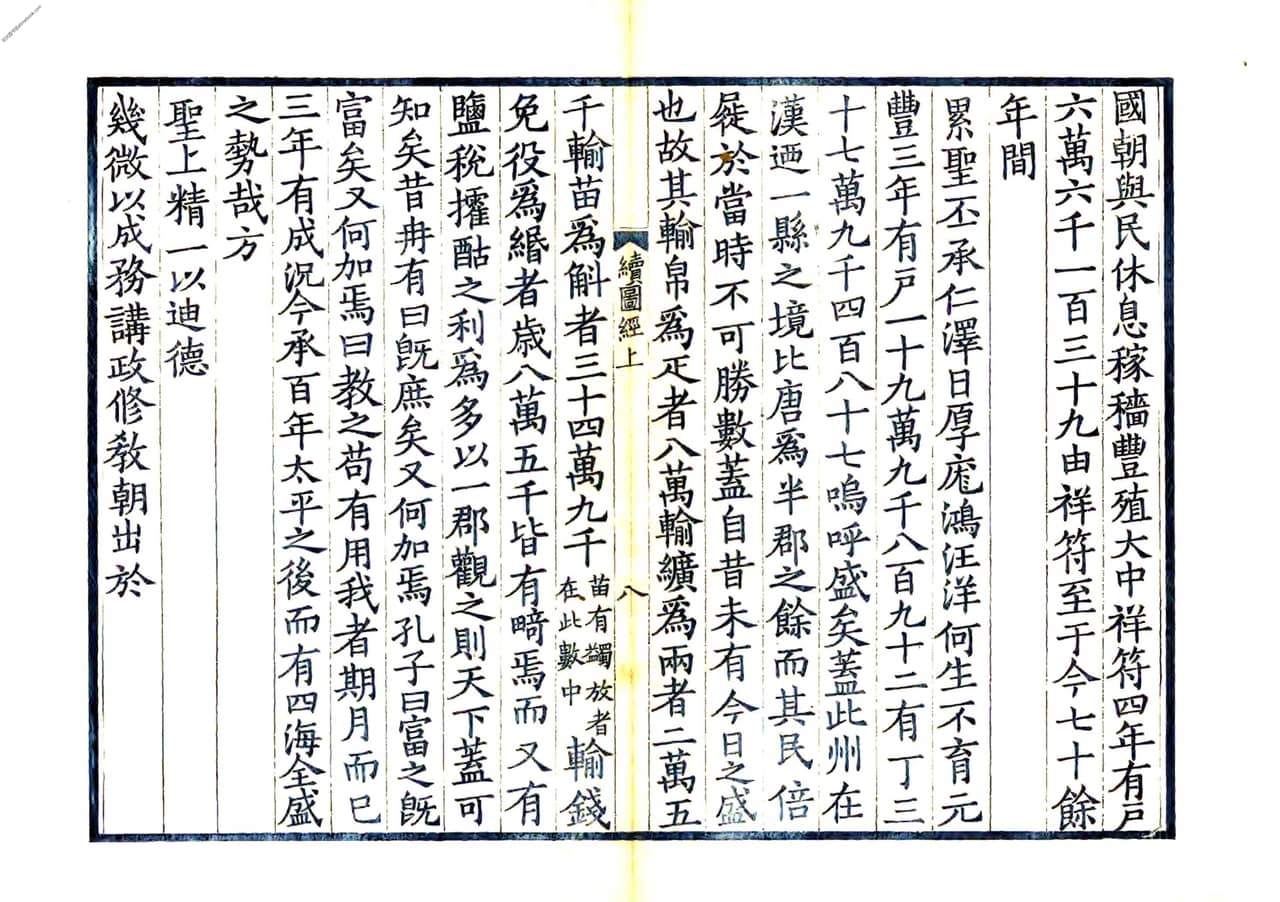 國朝與民休息稼穡豐殖大中祥符四年有戸
六萬六千一百三十九由祥符至于今七十餘
年間
累聖丕承仁澤日厚厖鴻汪洋何生不育元
豐三年有戸一十九萬九千八百九十二有丁三
十七萬九千四百八十七嗚呼盛矣蓋此州在
漢迺一縣之境比唐爲半郡之餘而其民倍
屣於當時不可勝數蓋自昔未有今日之盛
也故其輸帛爲疋者八萬輸纊爲兩者二萬五
續圖經上
八
千輸苗爲斛者三十四萬九千苗有蠲放者在此數中輸錢
免役爲緡者歲八萬五千皆有畸焉而又有
鹽稅㩁酤之利爲多以一郡觀之則天下蓋可
知矣昔冉有曰旣庶矣又何加焉孔子曰富之旣
富矣又何加焉曰教之苟有用我者期月而已
三年有成況今承百年太平之後而有四海全盛
之勢哉方
聖上精一以迪德
幾微以成務講政修教朝出於